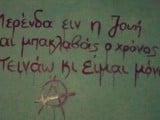 Μερένδα ειν η ζωή
αι μπακλαβάς ο χρόνος
Πεινάω κι είμαι μόν